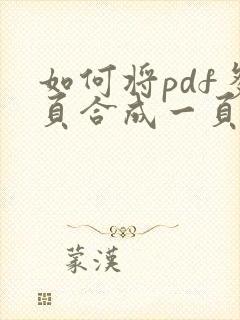 如何将pdf多
页合成一页
蒙汉